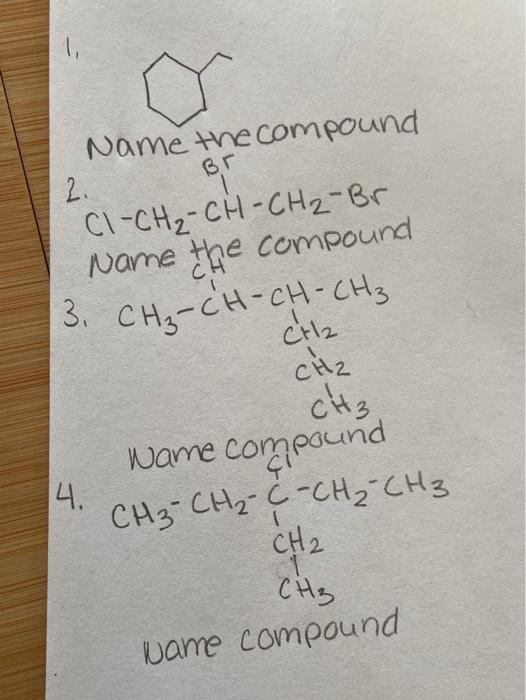 1.
Name the compound
Br
2.
Cl-CH2-CH-CH2-Br
Name the compound
CH
3. CH3-CH-CH-CH3
CH2
CH2
CH3
Name compound
Cl
4. CH3-CH2-C-CH2-CH3
CH2
CH3
Name compound